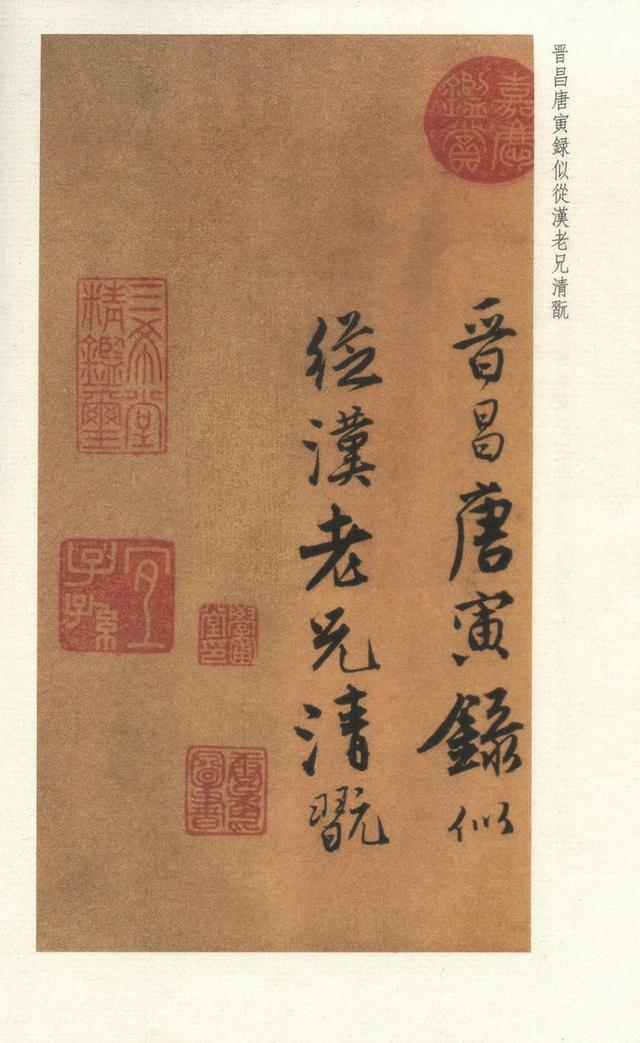 晋昌唐寅録似從漢老兄清翫
嘉慶鑑賞
晋昌唐寅録似
從漢老兄清翫
三希堂精鑑璽
宜子孫
唐寅圖書